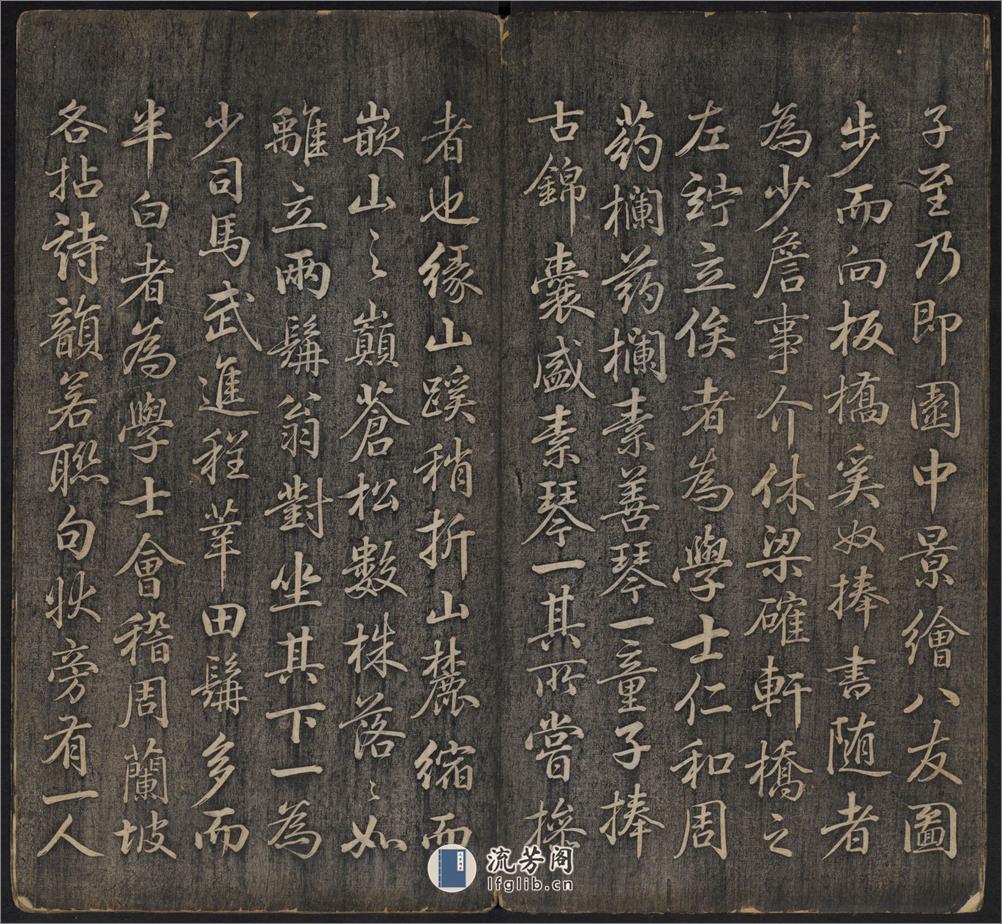 子至乃即園中景繪八友圖
步而向板橋奚奴捧書随者
為少詹事介休梁確軒橋之
左竚立俟者為學士仁和周
药欄药欄素善琴一童子捧
古錦囊盛素琴一其所嘗操
者也緣山蹊稍折山麓縮而
嵌山之巔蒼松數株落落如
離立兩髯翁對坐其下一為
少司馬武進程莘田髯多而
半白者為學士會稽周蘭坡
各拈詩韻若聯句狀旁有一人
流芳阁
lfglib.cn